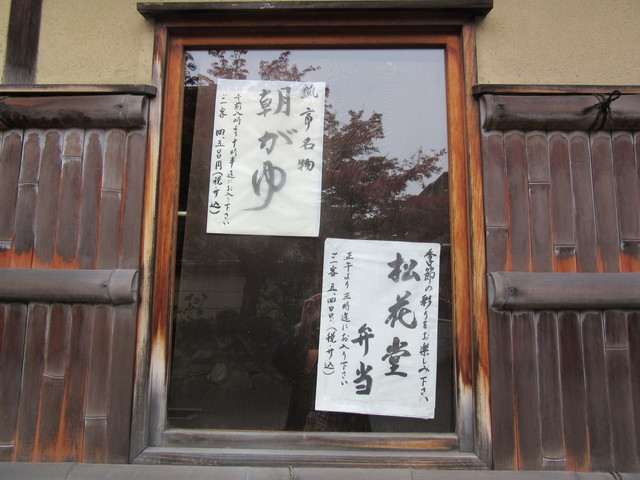 瓢亭名物
朝がゆ
午前八時より十時半迄にお入り下さい
一客 四、五〇〇円(税・サ込)
季節の彩りをお楽しみ下さい
松花堂
弁当
正午より三時迄にお入り下さい
一客 五、四〇〇(税・サ込)